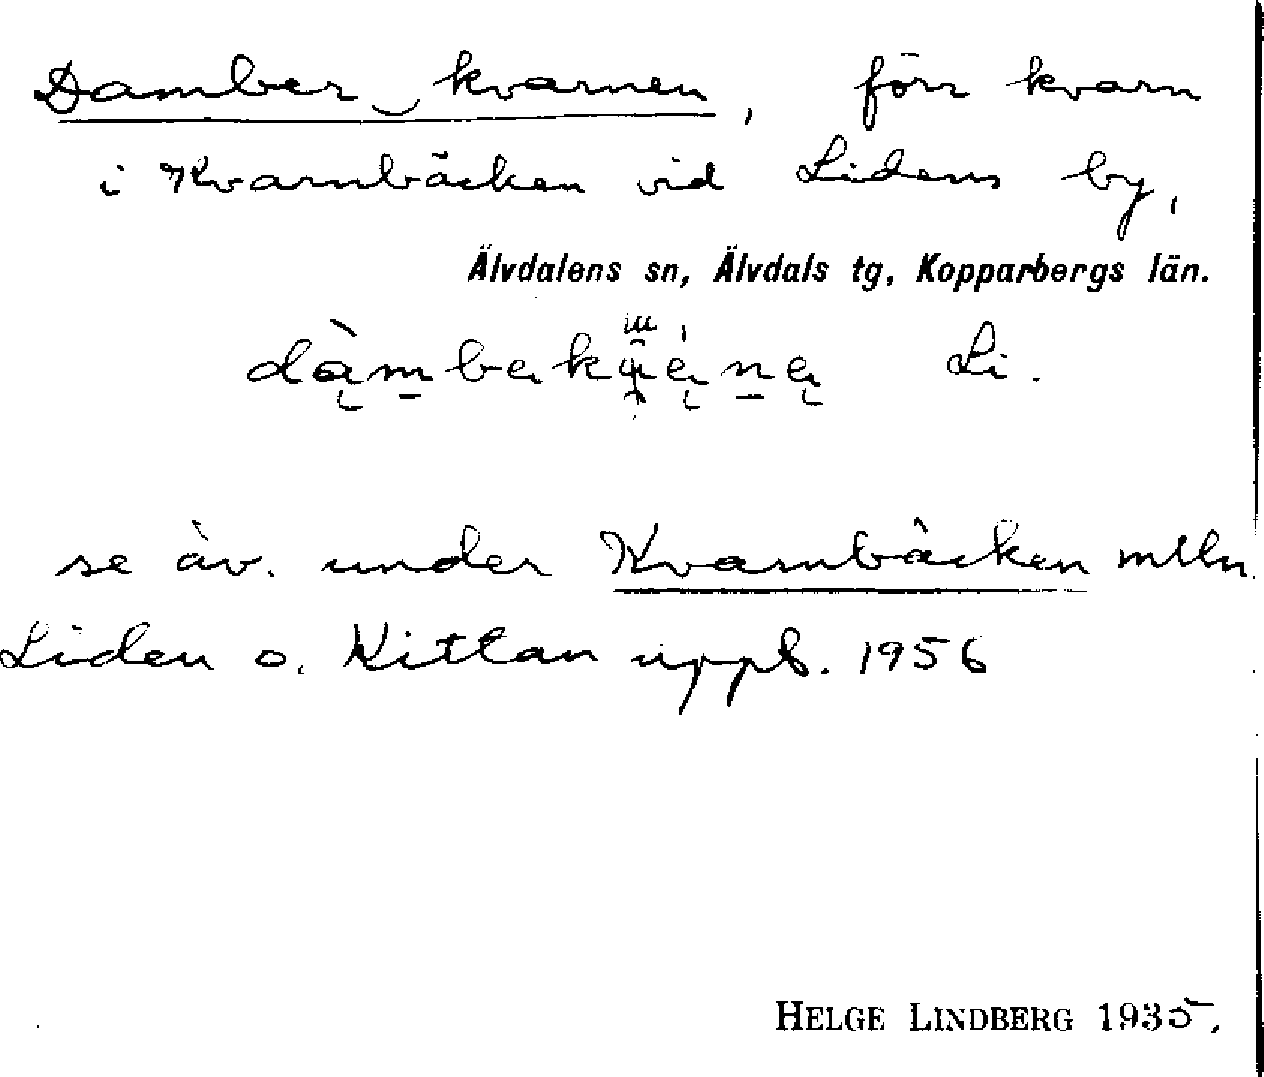 Damber‿kvarnen, förr kvarn
i Kvarnbäcken vid Lidens by,
Älvdalens sn, Älvdals tg, Kopparbergs län.
Li.
se äv. under Kvarnbäcken mlln
Liden o. Kittlan uppt. 1956
HELGE LINDBERG 1935.